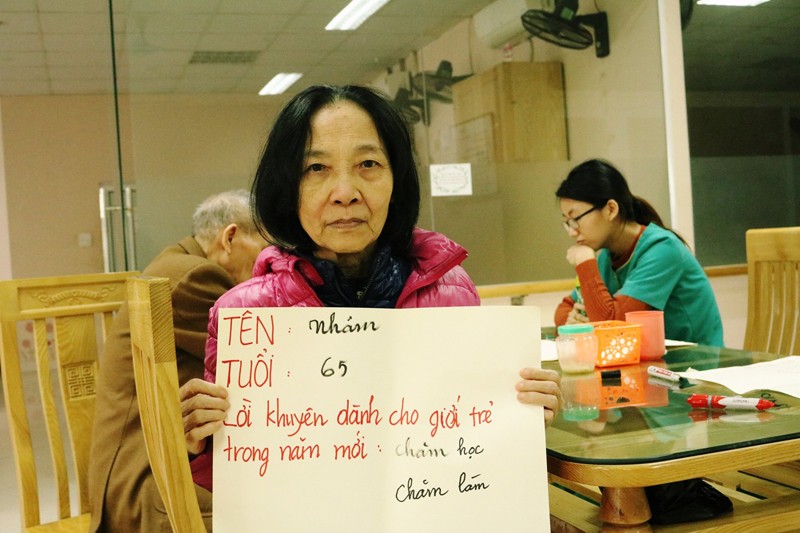 TÊN : Nhâm
TUỒI : 65
Lời khuyên dành cho giới trẻ
trong năm mới : chăm học
chăm làm